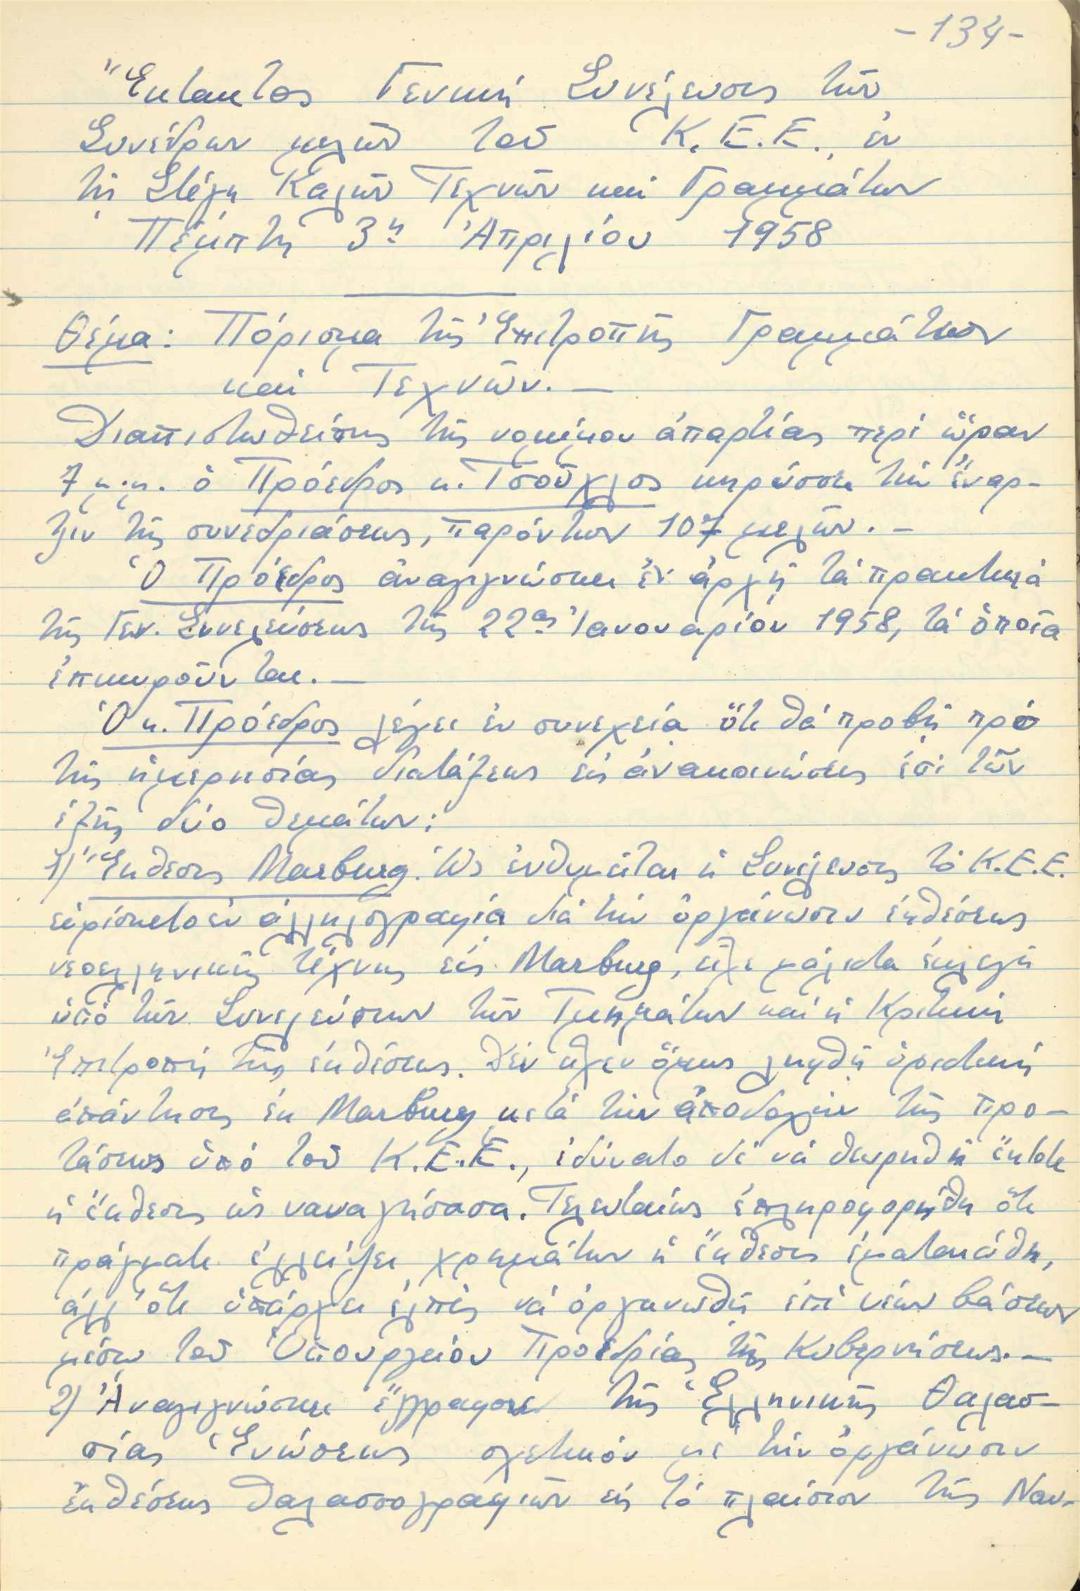 -134-
Ἔκτακτος Γενική Συνέλευσις τῶν
Συνέδρων μελῶν τοῦ Κ.Ε.Ε., ἐν
τῇ Στέγῃ Καλῶν Τεχνῶν καί Γραμμάτων
Πέμπτη 3η Ἀπριλίου 1958
Θέμα: Πόρισμα τῆς Ἐπιτροπῆς Γραμμάτων
καί Τεχνῶν.—
Διαπιστωθείσης τῆς νομίμου ἀπαρτίας περί ὥραν
7 μ.μ. ὁ Πρόεδρος κ. Τσοῦχλος κηρύσσει τήν ἔναρ-
ξιν τῆς συνεδριάσεως, παρόντων 107 μελῶν.—
Ὁ Πρόεδρος ἀναγιγνώσκει ἐν ἀρχῇ τά πρακτικά
τῆς Γεν. Συνελεύσεως τῆς 22ας Ἰανουαρίου 1958, τά ὁποῖα
ἐπικυροῦνται.—
Ὁ κ. Πρόεδρος λέγει ἐν συνεχεία ὅτι θά προβῇ πρό
τῆς ἡμερησίας διατάξεως εἰς ἀνακοινώσεις ἐπί τῶν
ἑξῆς δύο θεμάτων:
1) Ἔκθεσις Marburg. Ὡς ἐνθυμεῖται ἡ Συνέλευσις τό Κ.Ε.Ε.
εὑρίσκετο ἐν ἀλληλογραφία διά τήν ὀργάνωσιν ἐκθέσεως
νεοελληνικῆς τέχνης εἰς Marburg, εἶχε μάλιστα ἐκλεγῆ
ὑπό τῶν Συνελεύσεων τῶν Τμημάτων καί ἡ Κριτική
Ἐπιτροπή τῆς ἐκθέσεως. Δέν εἶχεν ὅμως ληφθῆ ὁριστική
ἀπάντησις ἐκ Marburg μετά τήν ἀποδοχήν τῆς προ-
τάσεως ὑπό τοῦ Κ.Ε.Ε., ἐδύνατο δέ νά θεωρηθῇ ἔκτοτε
ἡ ἔκθεσις ὡς ναυαγήσασα. Τελευταίως ἐπληροφορήθη ὅτι
πράγματι ἐλλείψει χρημάτων ἡ ἔκθεσις ἐματαιώθη,
ἀλλ' ὅτι ὑπάρχει ἐλπίς νά ὀργανωθῇ ἐπί νέων βάσεων
μέσω τοῦ Ὑπουργείου Προεδρίας τῆς Κυβερνήσεως.—
2) Ἀναγιγνώσκει ἔγγραφον τῆς Ἑλληνικῆς Θαλασ-
σίας Ἑνώσεως σχετικόν μέ τήν ὀργάνωσιν
ἐκθέσεως θαλασσογραφιῶν εἰς τό πλαίσιον τῆς Ναυ-